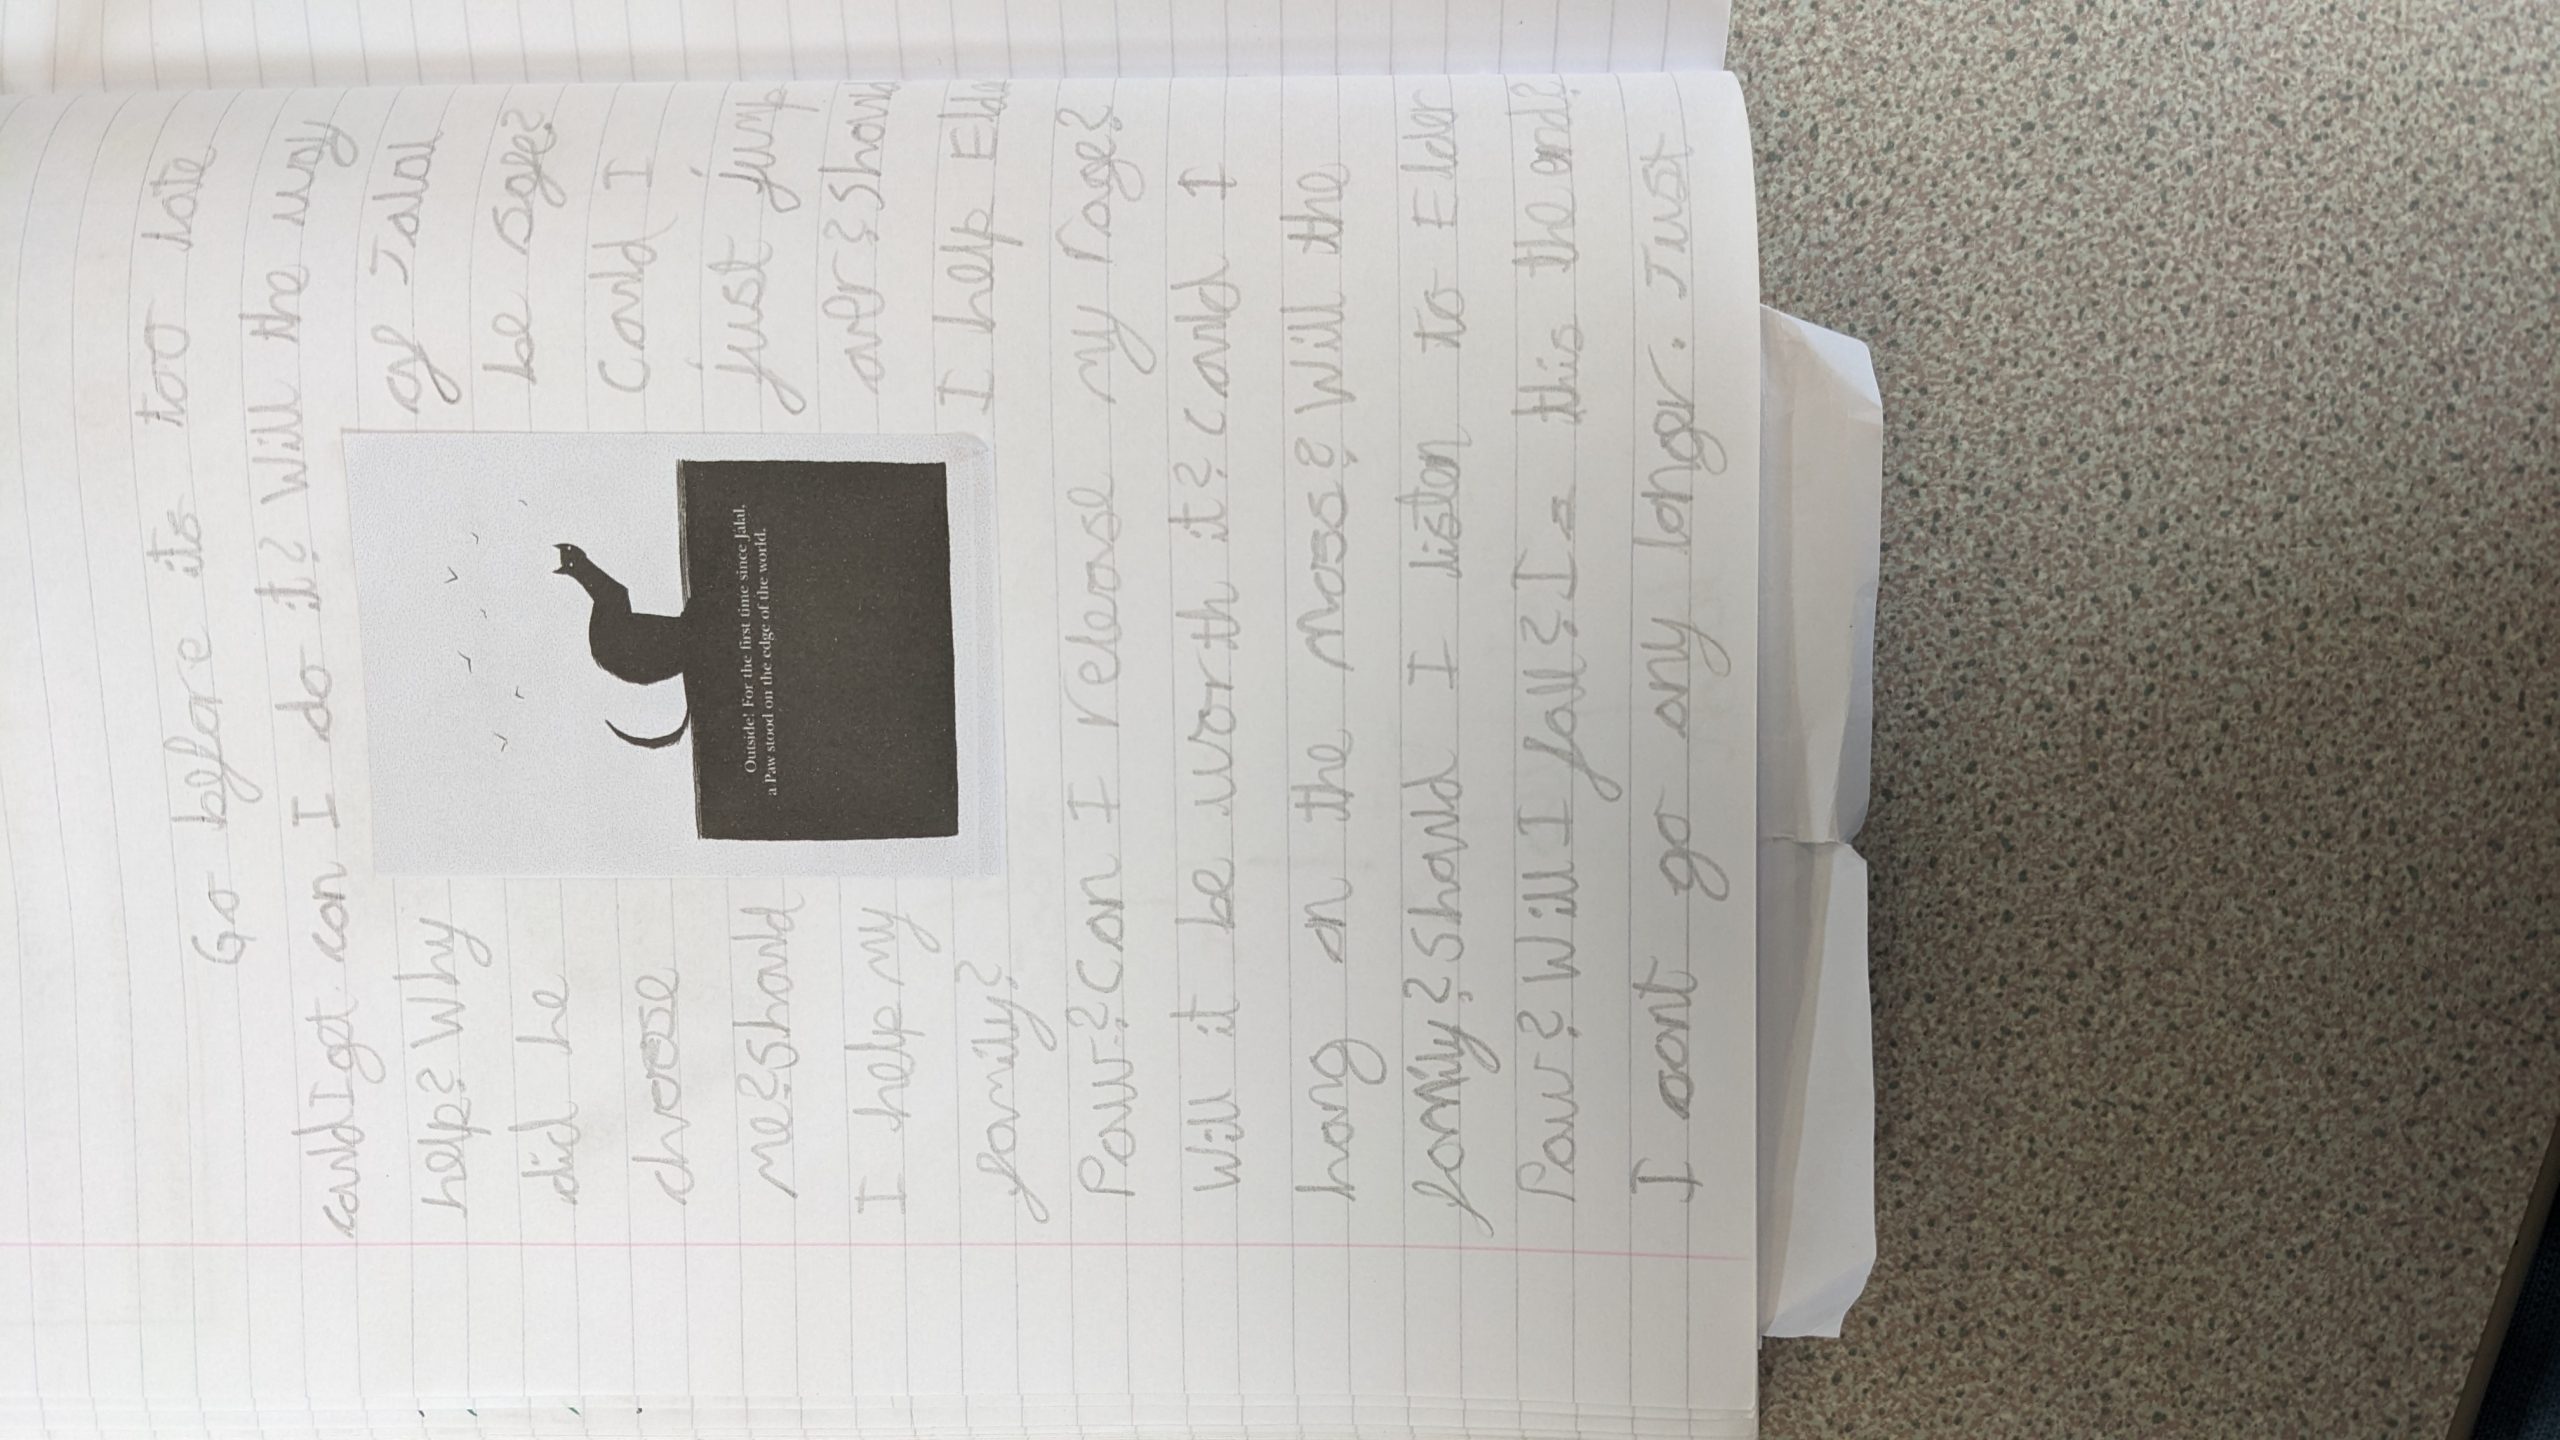 Go before its too late
could I get
help? Why
did he
choose
me? Should
I help my
family?
can I do it? Will the way
of Jalal
be safe?
Could I
just jump
over? Should
I help Elder
Outside! For the first time since Jalal,
a Paw stood on the edge of the world.
Paw? Can I release my rage?
Will it be worth it? Could I
hang on the moss? Will the
family? Should I listen to Elder
Paw? Will I fall? Is this the end?
I cant go any longer. Just